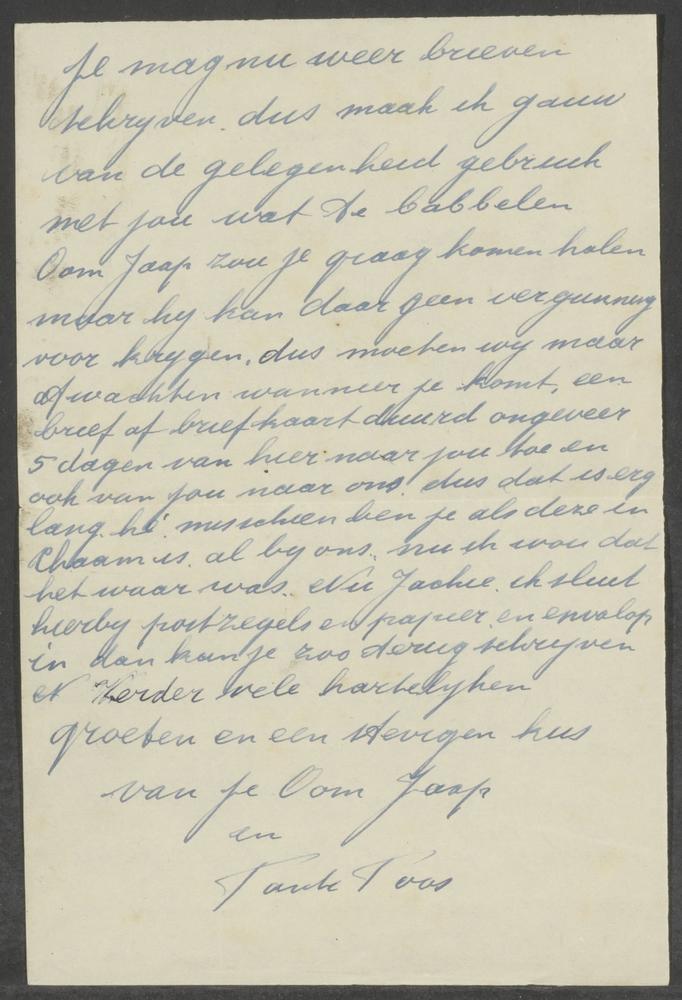 Je mag nu weer brieven
schryven. dus maak ik gauw
van de gelegenheid gebruik
met jou wat te babbelen
Oom Jaap zou je graag komen halen
maar hy kan daar geen vergunning
voor krygen, dus moeten wy maar
afwachten wanneer je komt, een
brief of briefkaart duurd ongeveer
5 dagen van hier naar jou toe en
ook van jou naar ons. dus dat is erg
lang. hé misschien ben je als deze in
Chaam is. al by ons. nu ik wou dat
het waar was. Nu Jackie. ik sluit
hierby postzegels en papier. en envalop
in dan kan je zoo terug schryven
Verder vele hartelyken
groeten en een stevigen kus
van je Oom Jaap
en
Tante Toos